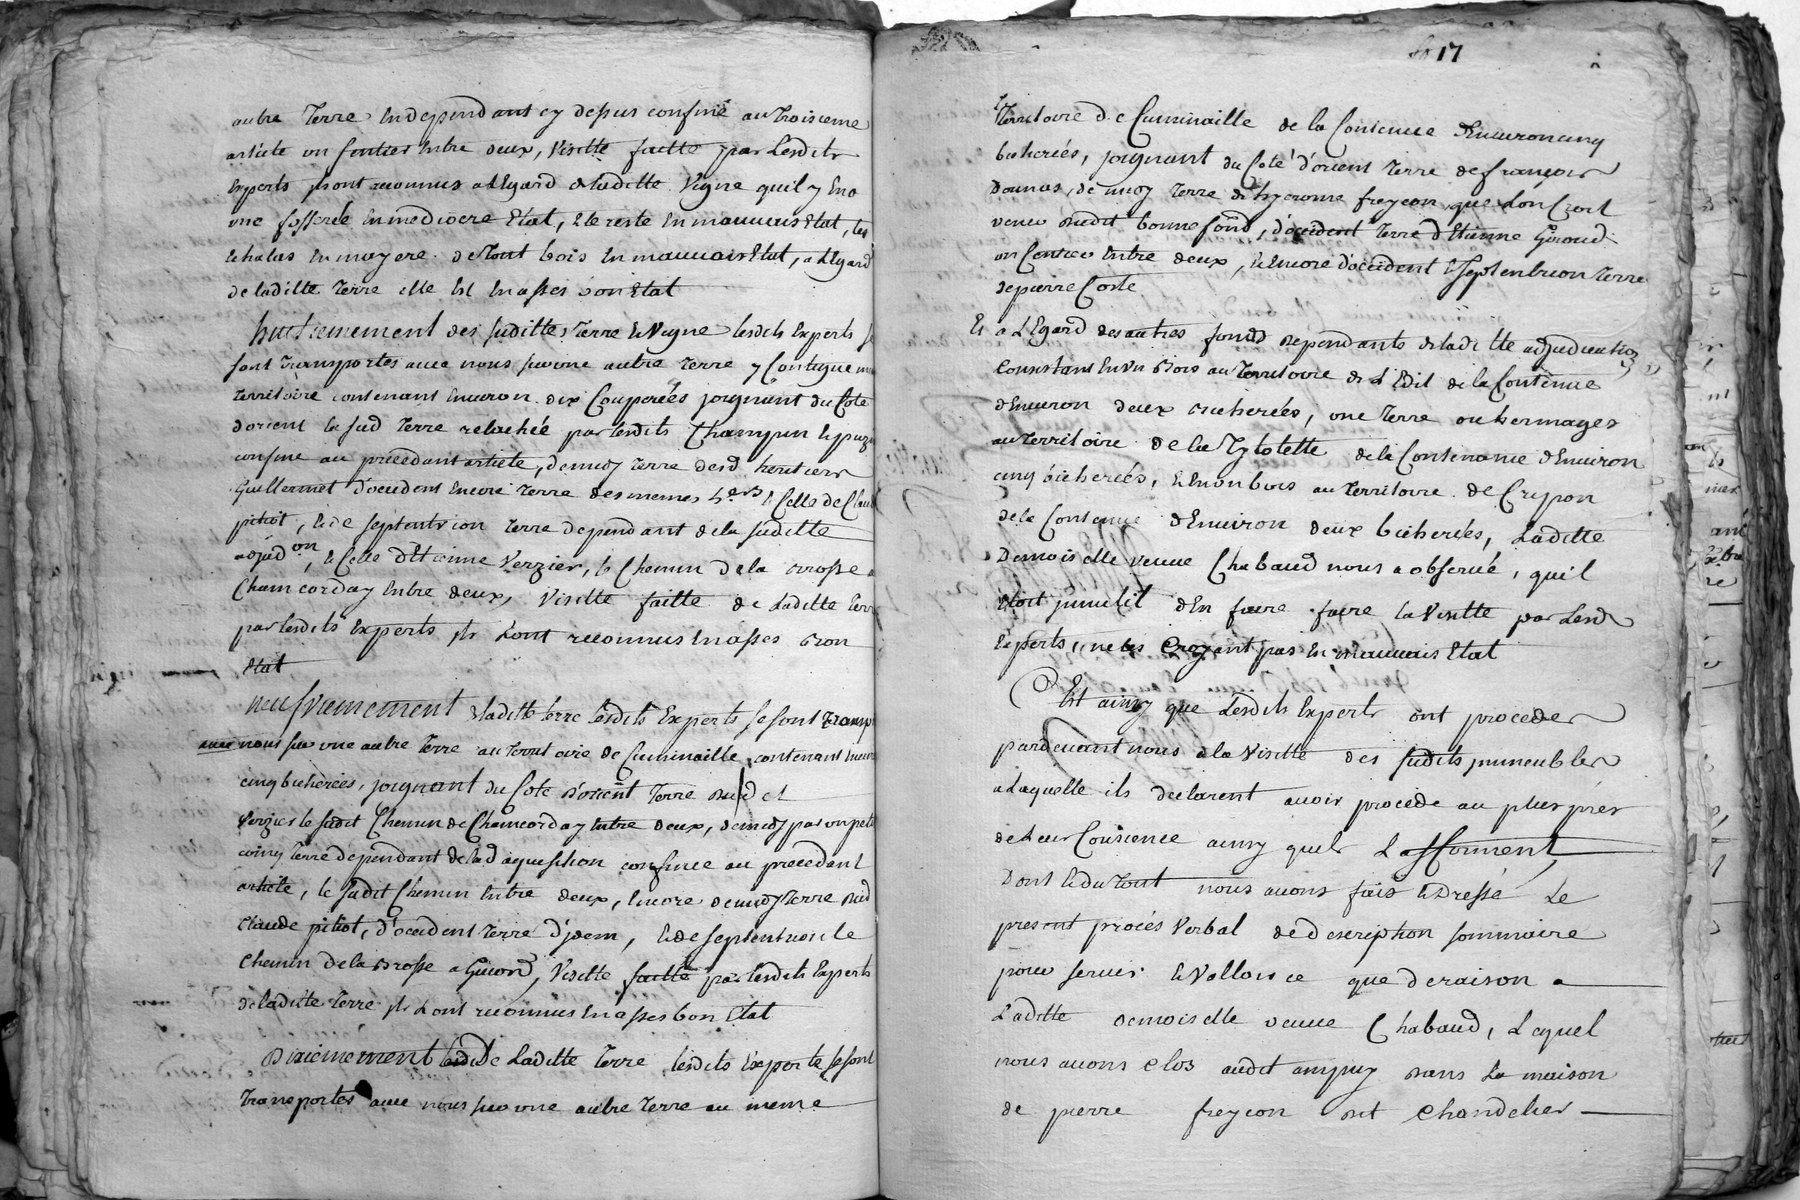 autre Terre Independant cy dessus confiné au Troisieme
article un sentier Entre deux, Visitte faitte par Lesdits
Experts ont reconnus a LEgard de laditte Vigne quil y En a
une fosserée En mediocre Etat, Et le reste En mauvais Etat, les
Echalas En moyere de Tout bois En mauvais Etat, a LEgard
de laditte Terre elle Est En asses bon Etat
huittiemement des suditte Terre Et Vigne lesdits Experts se
sont Transportes avec nous sur une autre Terre y Contigue
Territoire contenant Environ dix Couperées joignant du Coté
dorient Et sud Terre relachée par lesdits Champin
confiné au precedant article, de midy Terre desd heritiers
Guillermet d'occident Encore Terre des memes hers Et Celle de
pitiot, Et de septentrion Terre dependant de la suditte
adjudon, Et Celle d'Etienne Verzier, le Chemin de la Brosse a
Chamcorday Entre deux, Visitte faitte de Laditte Terre
par lesdits Experts ils Lont reconnus En asses Bon
Etat
neufviemement de laditte terre lesdits Experts se sont
avec nous sur une autre Terre au Territoire de Cuminaille contenant
cinq bicherées, joignant du Coté d'orient Terre dud et
Verzier le sudit Chemin de Chamcorday Entre deux, de midy par un petit
coing Terre dependant de lad aquisition confinée au precedant
article, le sudit Chemin Entre deux, Encore de midy Terre dud
Claude pitiot, d'occident Terre d'idem, Et de septentrion le
Chemin de la Brosse a Givord, Visitte faitte par lesdits Experts
de laditte Terre ils Lont reconnus En asses bon Etat
Dixiemement de Laditte Terre, lesdits Experts se sont
Transportes avec nous sur une autre Terre au meme
17
Territoire de Cuminaille de la Contenue dEnviron cinq
bicherées, joignant du Coté d'orient Terre de françois
Dounas, de midy Terre de hyerome freycon, que Lon Croit
venir dudit bonnefond, d'occident Terre dEtienne Giroud
un Entre deux, Et Encore d'occident Et Septentrion Terre
de pierre Coste
Et a LEgard des autres fonds dependants de laditte adjudication
Consistans En un Bois au Territoire de L'Edit de la Contenue
dEnviron deux bicherées, une Terre ou hermages
au Territoire de la de la Contenance dEnviron
cinq bicherées, Et En un bois au Territoire de Crepon
de la Contenue dEnviron deux bicherées, Laditte
Demoiselle veuve Chabaud nous a observé, quil
Etoit jnutil dEn faire faire la Visitte par Lesd
Experts, ne les Croyant pas En mauvais Etat
Est ainsy que Lesdits Experts ont proceder
pardevant nous a la Visitte des sudits jmmeubles
a Laquelle ils declarent avoir procedé au plus pres
de Leur Consience ainsy quils Laffirment,
Dont Et du Tout nous avons fais Et Dressé Le
present procés Verbal de description sommaire
pour servir Et Valloir ce que de raison a
Laditte Demoiselle veuve Chabaud, Lequel
nous avons Clos audit ampuy dans La maison
de pierre freycon dit Chandelier